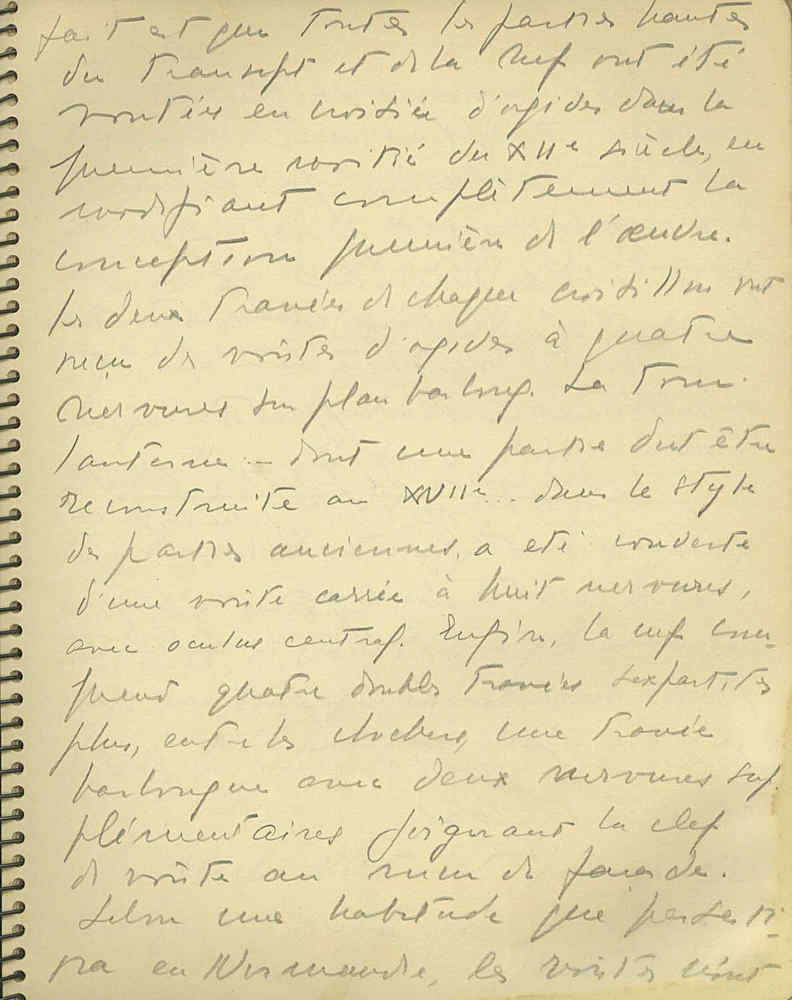 fait est que toutes les parties hautes
du transept et de la nef ont été
voutées en croisée d'ogives dans la
première moitié du XIIe siècle, en
modifiant complètement la
conception première de l'œuvre.
Les deux travées de chaque croisillon ont
reçu des voûtes d'ogives à quatre
nervures sur plan barlong. La tour
lanterne – dont une partie dut être
reconstruite au XVIIe.. dans le style
des parties anciennes, a eté couverte
d'une voûte carrée à huit nervures,
avec oculus central. Enfin, la nef com-
prend quatre doubles travées sexpartites
plus, entre les clochers, une travée
barlongue avec deux nervures sup-
plémentaires joignant la clef
de voûte au mur de façade.
Selon une habitude qui persisti-
ra en Normandie, les voûtes n'ont